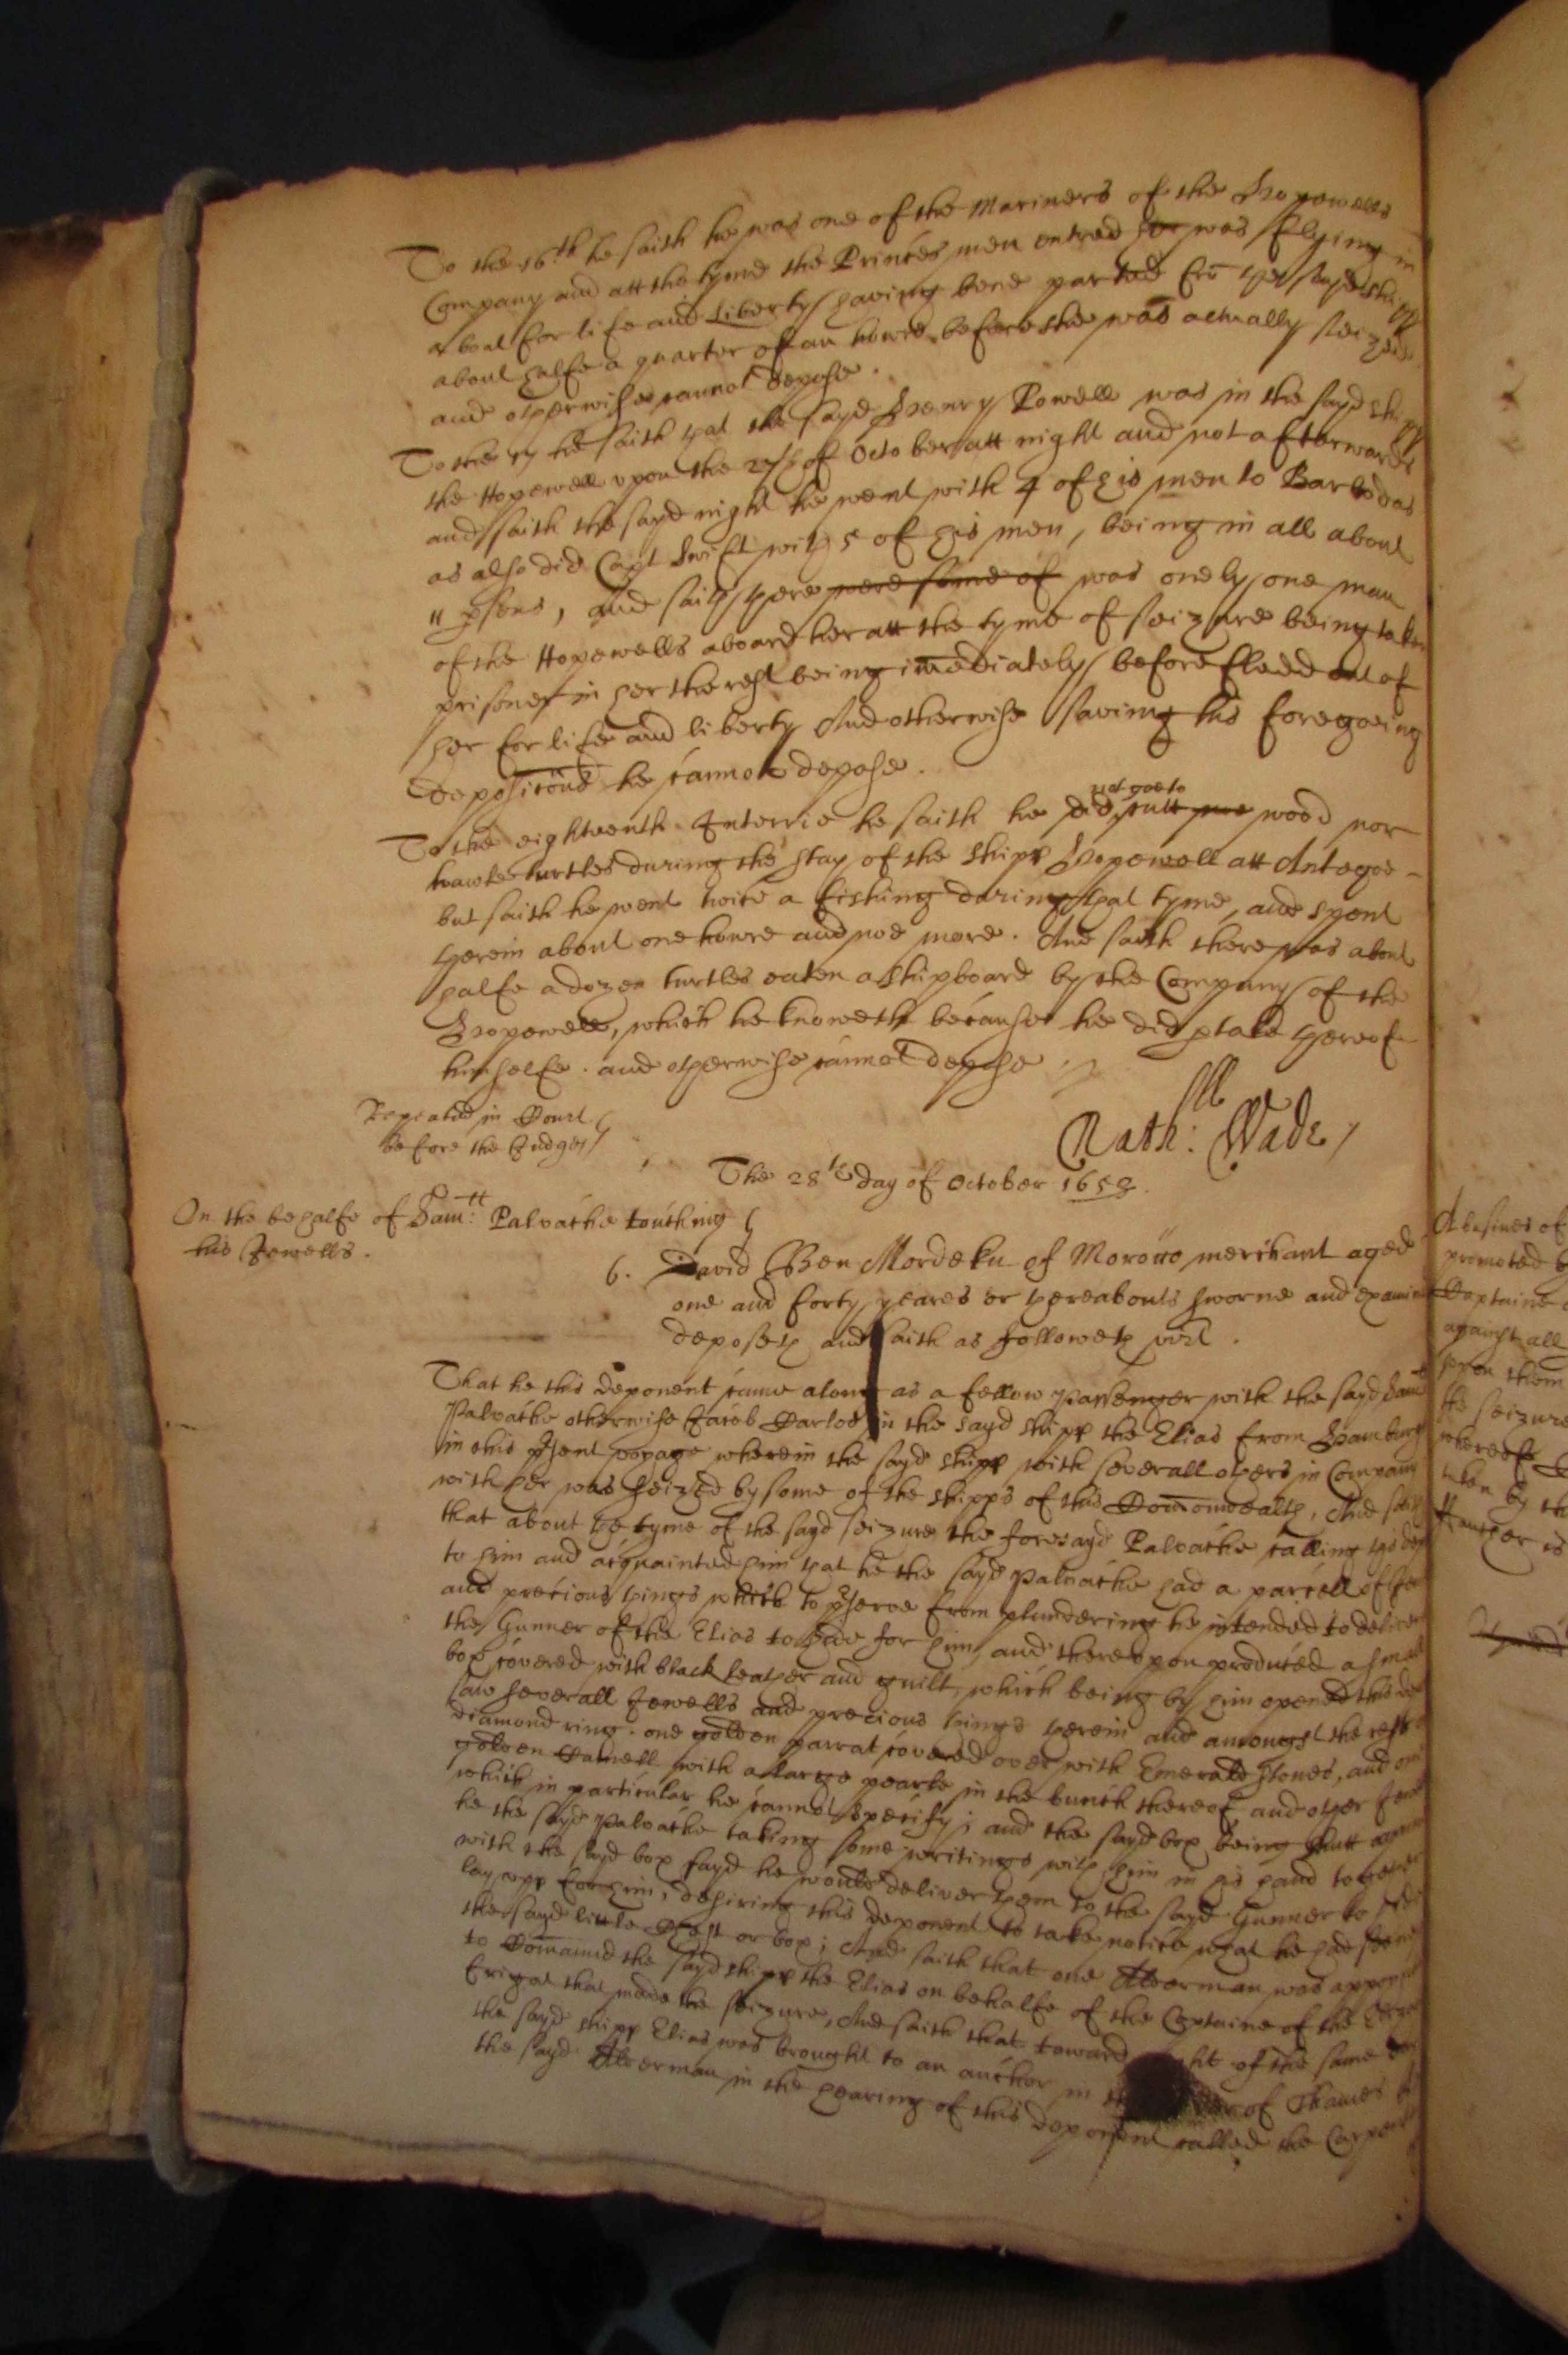 To the 16th he saith he was one of the Mariners of the Hopewells
Company and att the tyme the Princes men entred her was flying in
a boat for life and Liberty having bene parted fro the sayd shipp
about halfe a quarter of an howre before she was actually seized
and otherwise cannot depose.
To the 17 he saith that the sayd Henry Powell was in the sayd shipp
the Hopewell upon the 27th of October att night and not afterwards
and saith the sayd night he went with 4 of his men to Barbodas
as also did Capt Swift with 5 of his men, being in all about
11 psons, and saith there were some of was onely one man
of the Hopewells aboard her att the tyme of seizure being taken
prisoner in her the rest being imediately before fledd out of
her for life and liberty And otherwise saving his foregoeing
deposicons he cannot depose.
To the eighteenth Interrie he saith he did not goe to cutt noe wood nor
turtles during the stay of the shipp Hopewell att Antegoe
but saith he went twice a fishing during that tyme, and spent
therein about one howre and noe more. And saith there was about
halfe a dozen turtles eaten a shipboard by the Company of the
Hopewell, which he knoweth because he did ptake thereof
himselfe. and otherwise cannot depose
Repeated in Court
before the Judges
Nath: Wade
The 28th day of October 1653.
On the behalfe of Samll Palvache touching
his Jewells.
6. David Ben Mordeku of Morocco merchant aged
one and forty yeares or thereabouts sworne and examined
deposeth and saith as followeth vizt.
That he this deponent came along as a fellow passenger with the sayd Saml
Palvache otherwise Jacob Carlos in the sayd shipp the Elias from Hamburg
in this psent voyage wherein the sayd shipp with severall others in Company
with her was seized by some of the shipps of this Comonwealth, And saith
that about the tyme of the sayd seizure the foresayd Palvache calling this dept
to him and acquainted him that he the sayd Palvache had a parcell of Je
and precious things which to pserve from plundering he intended to deliver
the Gunner of the Elias to hide for him, and thereupon produced a small
box covered with black leather and guilt, which being by him opened this dept
saw severall Jewells and precious things therein and amongst the rest
diamond ring. one golden parrat covered over with Emerald stones, and one
golden Camell with a large pearle in the bunch thereof and other Jew
which in particular he cannot specify; and the sayd box being shutt againe
he the sayd Palvache taking some writings with him in his hand together
with the sayd box sayd he would deliver them to the sayd Gunner to
lay upp for him, desiring this deponent to take notice what he had seene
the sayd little Chest or box; And saith that one Alderman was appoynted
to Comaund the sayd shipp the Elias on behalfe of the Captaine of the
frigot that made the seizure, And saith that toward ht of the same day
the sayd shipp Elias was brought to an anchor in th of Thames
the sayd Alderman in the hearing of this deponent called the Carpent
A busines of
promoted
Captaine
against all
them
the seizure
whereof
taken by th